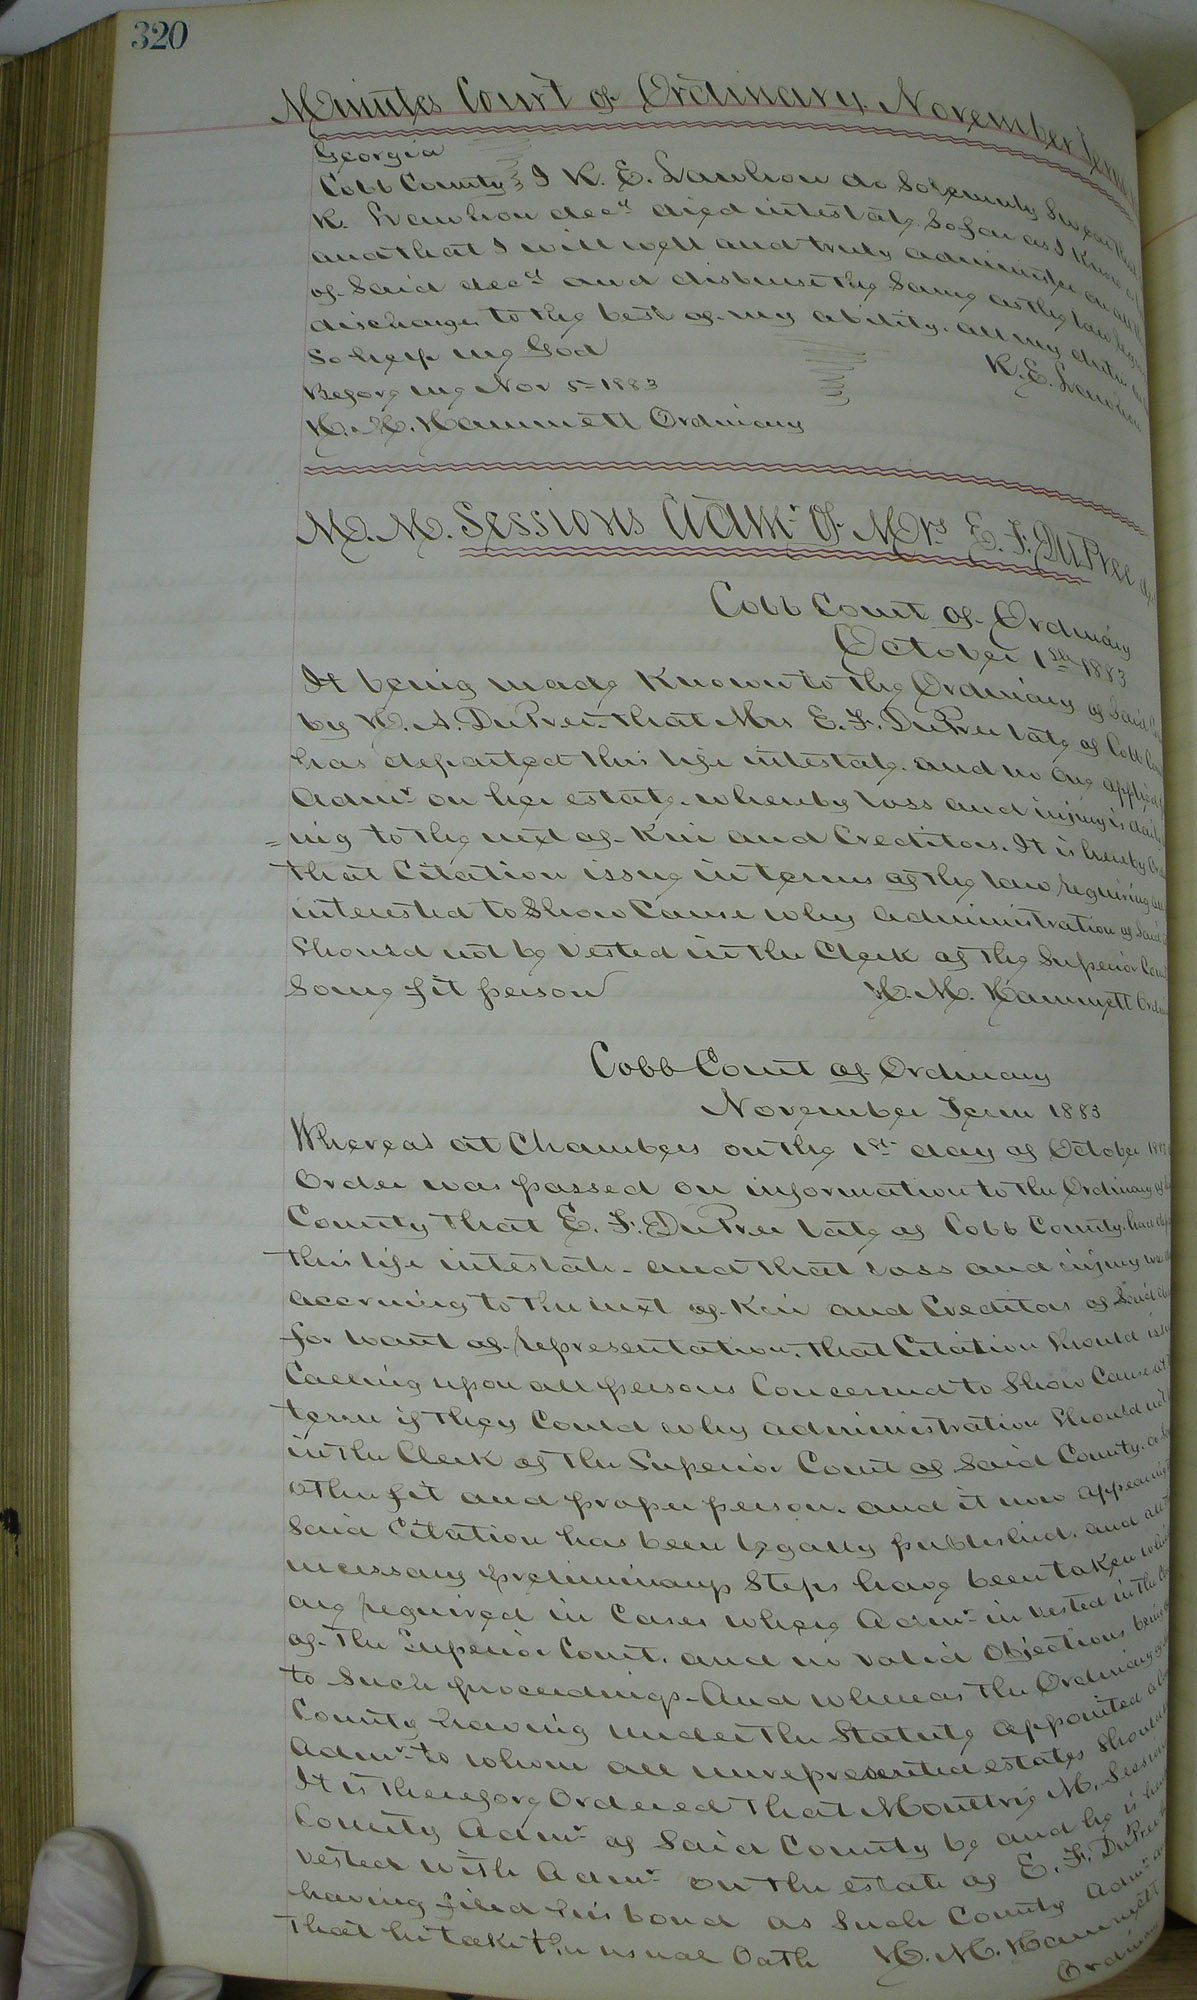 320
Minutes Court of Ordinary November Term
Georgia
Cobb County } I K. E. Lawhon do Solemnly Swear that
K. Lawhon decd died intestate so far as I Know
and that I will well and truly administer on all the
of Said decd and disburse the Same as the law
discharge to the best of my ability, all my duties
So help me God
K. E. Lawhon
Before me Nov 5= 1883
H. M. Hammett Ordinary
M. M. Sessions Admr. Of Mrs E. F. DuPree
Cobb Court of Ordinary
October 1st 1883
It being made Known to the Ordinary of Said
by H. A. DuPree that Mrs E. F. DuPree late of Cobb
has departed this life intestate, and no one applied
Admr on her estate, whereby loss and injury is daily
=ing to the next of Kin and Creditors. It is hereby
that Citation issue in terms of the law requiring all
interested to Show Cause why administration of Said
Should not be Vested in the Clerk of the Superior
Some fit person H. M. Hammett
Cobb Court of Ordinary
November Term 1883
Whereas at Chambers on the 1st day of October
Order was passed on information to the Ordinary of
County that E. F. DuPree late of Cobb County had
this life intestate and that loss and injury
accruing to the next of Kin and Creditors of Said
for want of representation, that Citation Should
Calling upon all persons Concerned to Show Cause at
term if they Could why administration Should not
in the Clerk of the Superior Court of Said County, or
other fit and proper person, and it now appearing
Said Citation has been legally published, and all
necessary preliminary Steps have been taken
are required in Cases where Admr. in vested in the
of The Superior Court, and no valid Objections being
to Such proceedings. And whereas the Ordinary of
County having under the Statute appointed a
Admr. to whom all unrepresented estates Should
It is Therefore Ordered That Moultrie M. Sessions
County Admr. of Said County be and he is
vested with Admr. on the estate of E. F. DuPree
having filed his bond as Such County Admr.
That he take the usual Oath H. M. Hammett
Ordinary